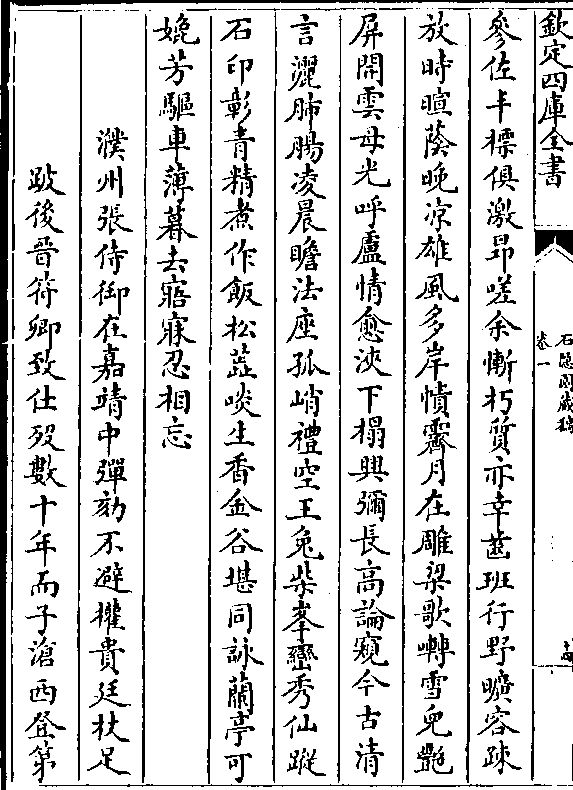 欽定四庫全書
石隱園藏稿
卷一
參佐丰標俱激昂嗟余慚朽質亦幸齒班行野曠容疎
放時暄蔭晚凉雄風多岸幘霽月在雕梁歌囀雪兒艷
屏開雲母光呼盧情愈浹下榻興彌長高論窺今古清
言灑肺腸凌晨瞻法座孤峭禮空王兔柴峯巒秀仙蹤
石印彰青精煮作飯松蕋啖生香金谷堪同詠蘭亭可
媲芳驅車薄暮去寤寐忍相忘
濮州張侍御在嘉靖中彈劾不避權貴廷杖足
跛後晉符卿致仕歿數十年而子滄西登第